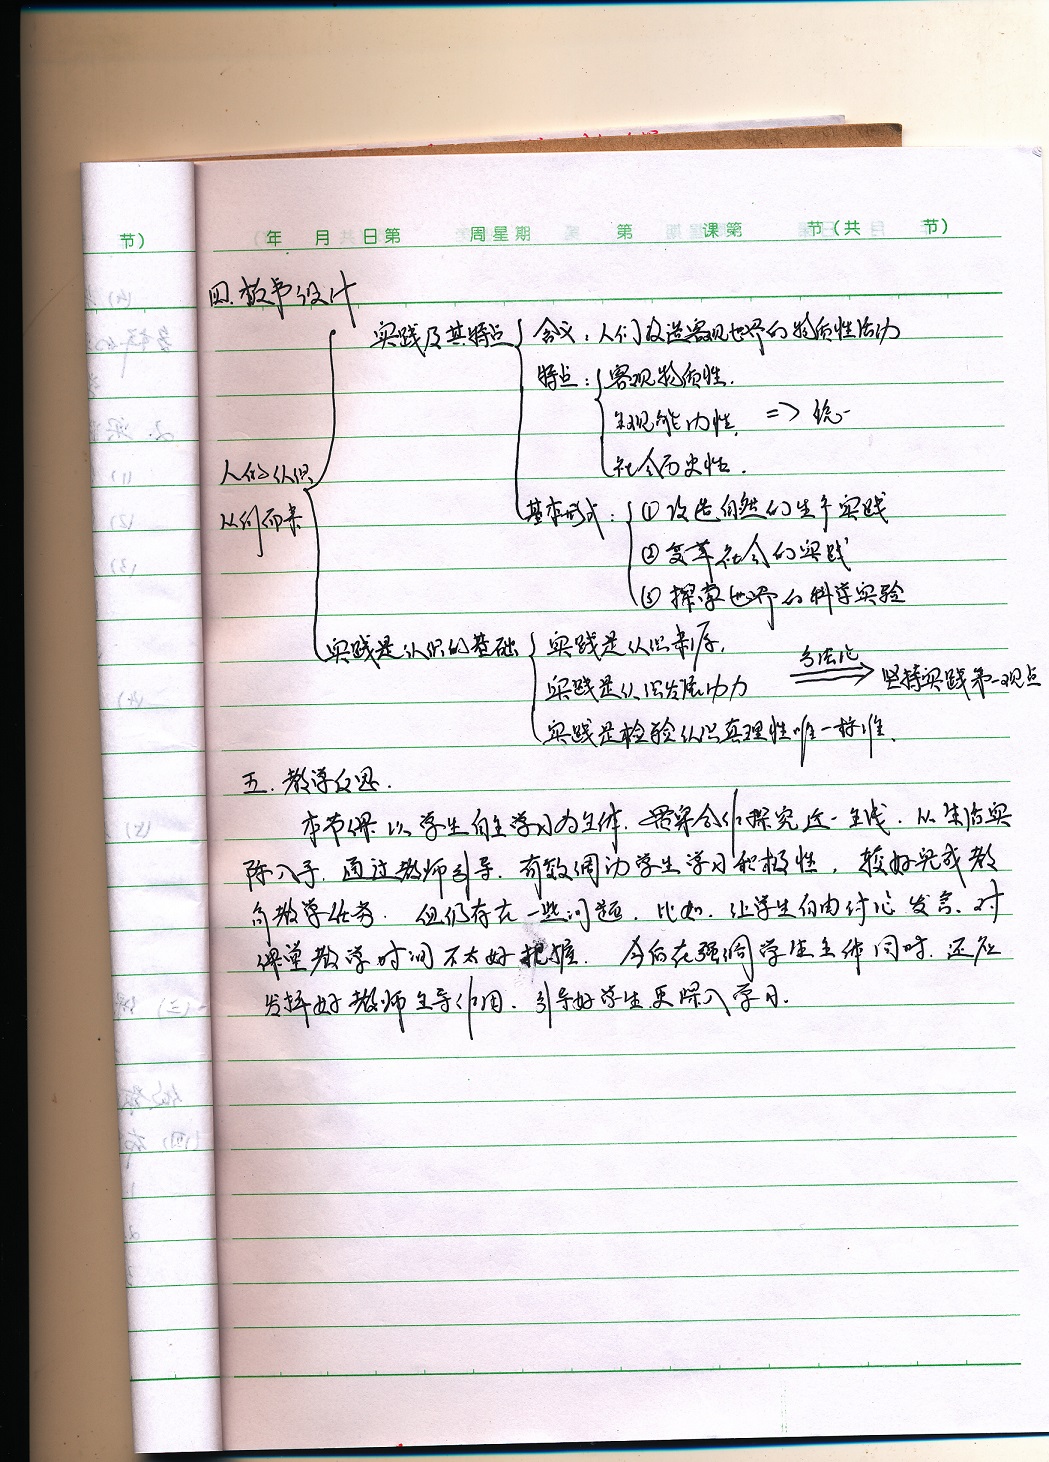 节)
年 月 日第 周星期 第 课第 节(共 节)
四.板书设计
实践及其特点 含义:人们改造客观世界的物质性活动
特点: 客观物质性.
主观能动性. => 统一
社会历史性.
人的认识
从何而来
基本形式: ①改造自然的生产实践
②变革社会的实践
③探索世界的科学实验
实践是认识的基础 实践是认识来源.
实践是认识发展动力 方法论 坚持实践第一观点
实践是检验认识真理性唯一标准.
五.教学反思.
本节课以学生自主学习为主体.贯穿合作探究这一主线.从生活实
际入手.通过教师引导.有效调动学生学习积极性,较好完成教
育教学任务.但仍存在一些问题.比如.让学生自由讨论发言.对
课堂教学时间不太好把握.今后在强调学生主体同时.还应
发挥好教师主导作用.引导好学生更深入学习.